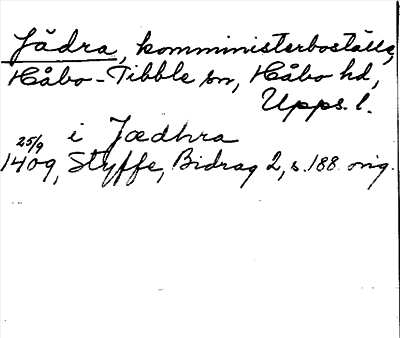 Jädra, komministerboställe,
Håbo-Tibble sn, Håbo hd,
Upps. l.
i Jædhra
25/9 1409, Styffe, Bidrag 2, s. 188. orig.